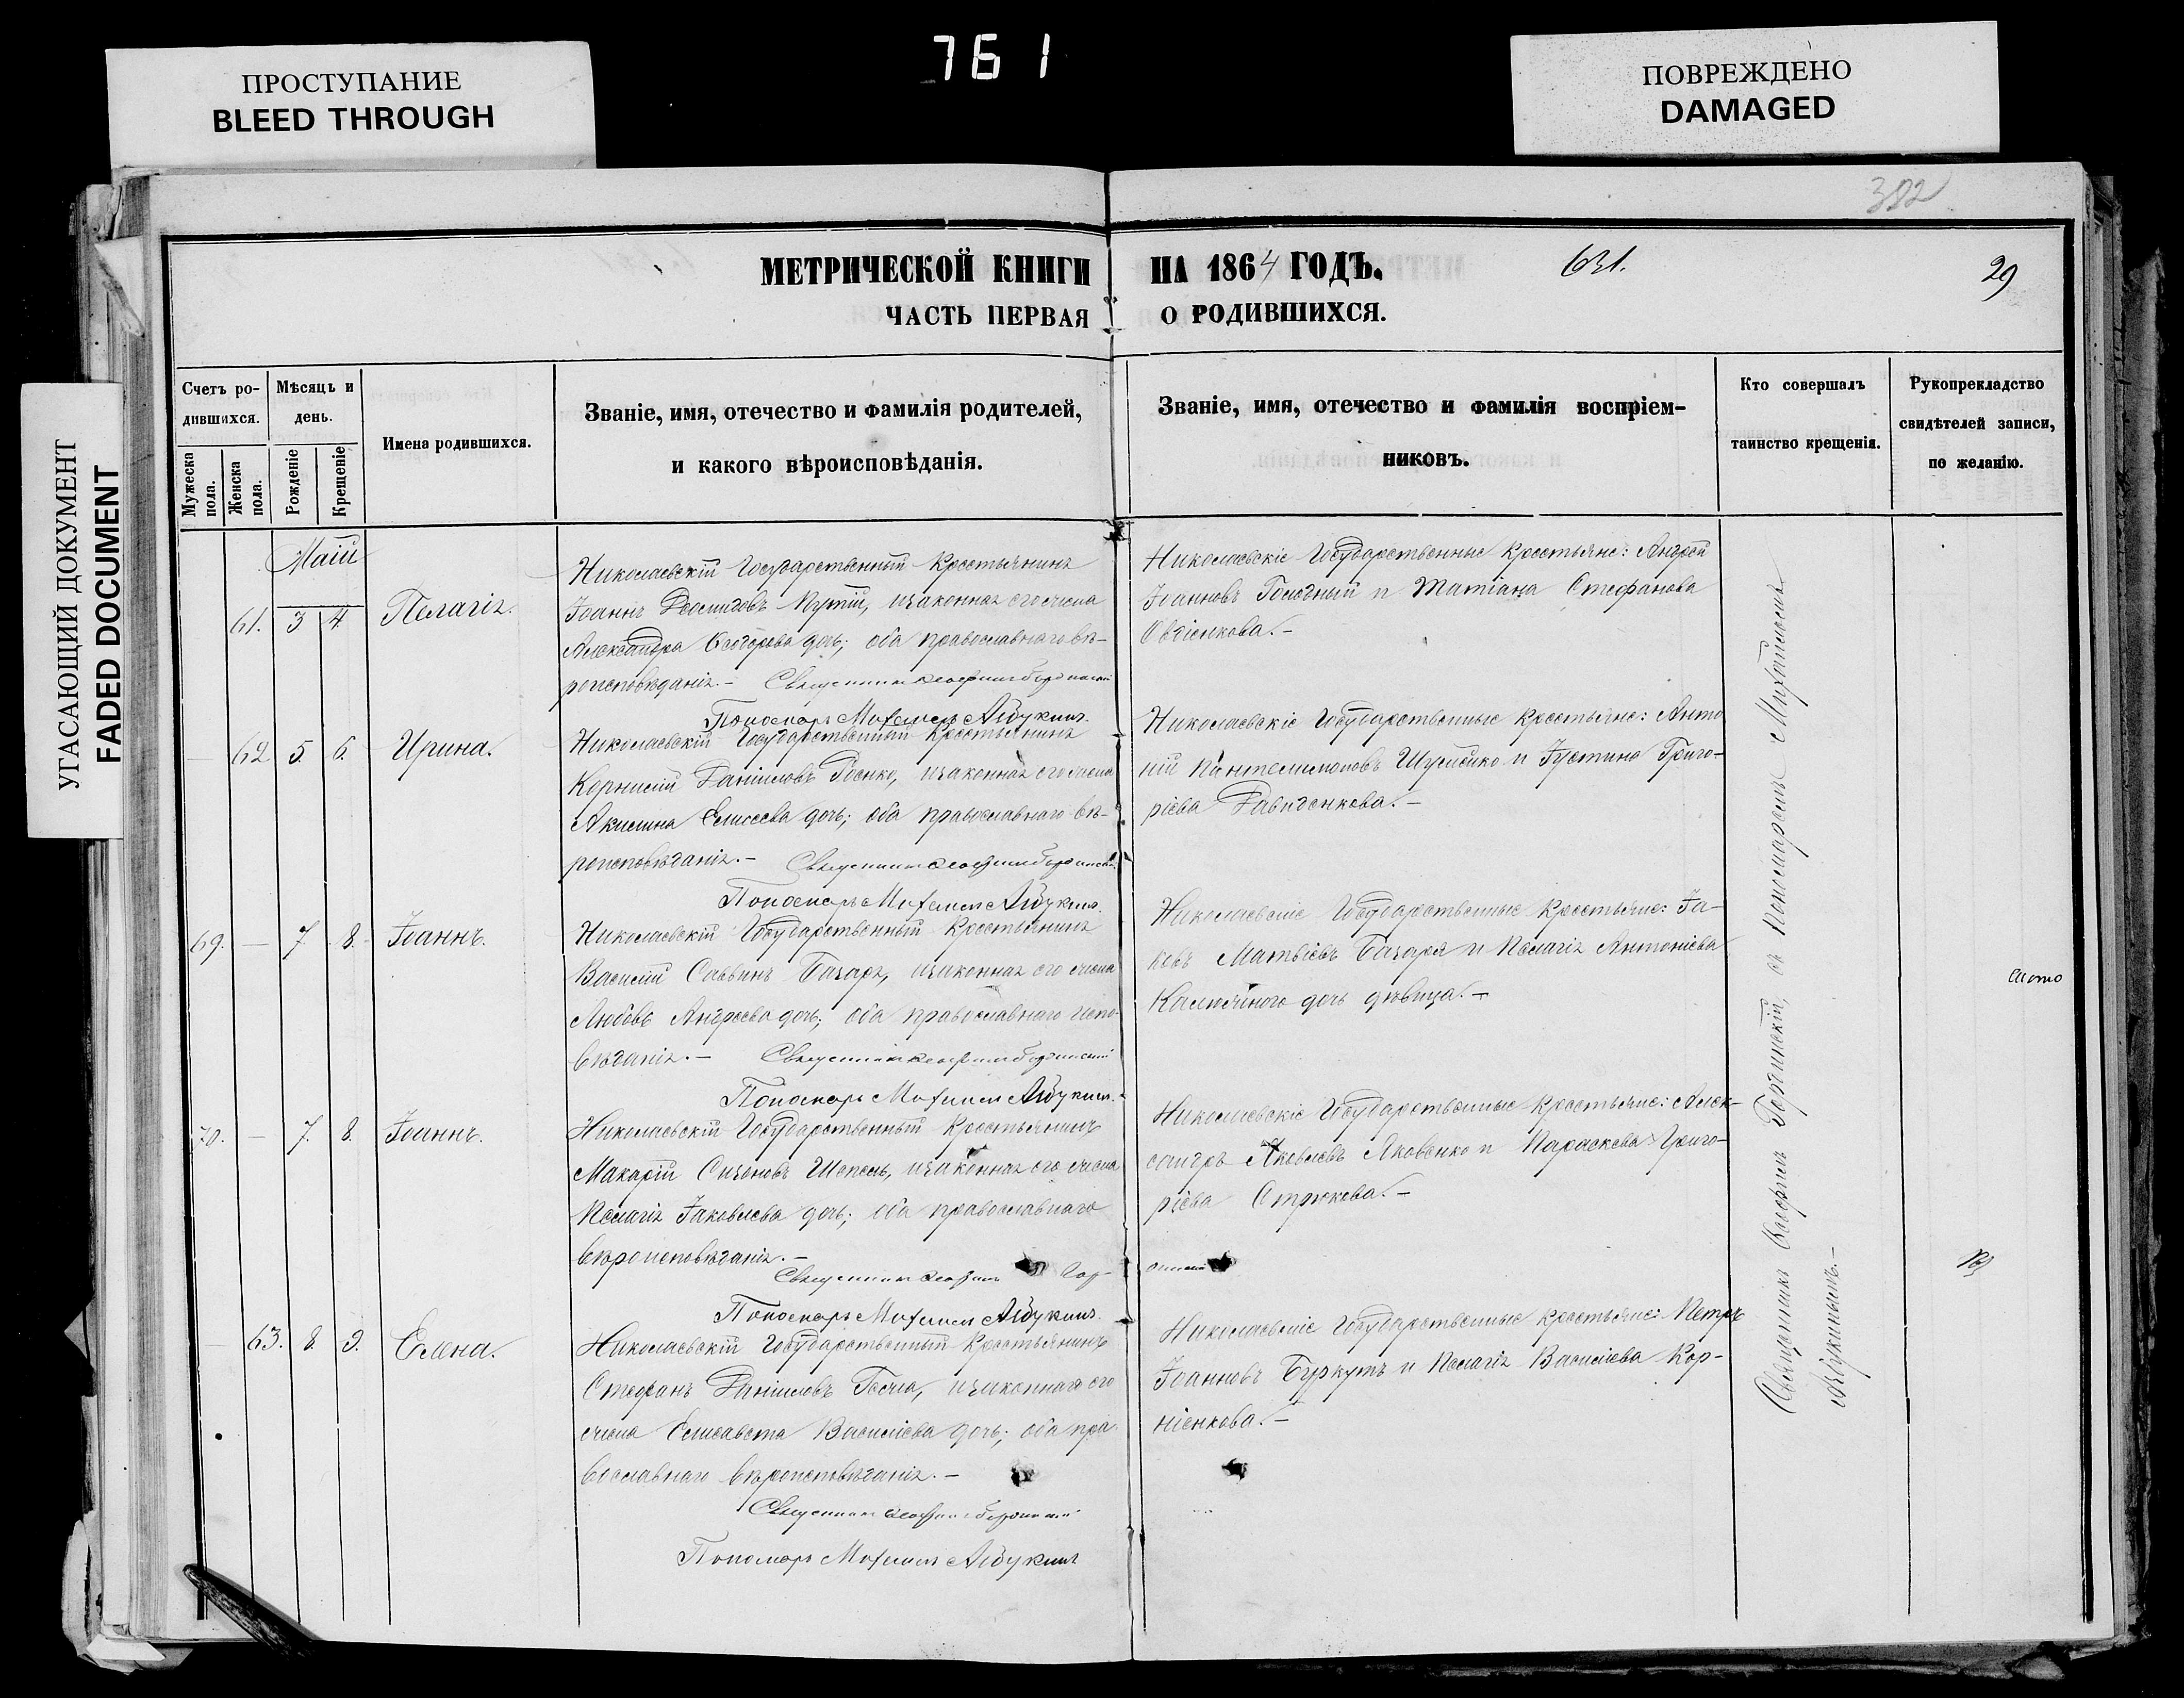 761
ПРОСТУПАНИЕ
BLEED THROUGH
ПОВРЕЖДЕНО
DAMAGED
УГАСАЮЩИЙ ДОКУМЕНТ
FADED DOCUMENT
382
МЕТРИЧЕСКОЙ КНИГИ НА 1864 ГОДЪ. 631. 29
ЧАСТЬ ПЕРВАЯ О РОДИВШИХСЯ.
Счетъ ро-
дившихся.
Мужеска
пола.
Женска
пола.
Мѣсяцъ и
день.
Рожденіе
Крещеніе
Имена родившихся.
Званіе, имя, отечество и фамилія родителей,
и какого вѣроисповѣданія.
Званіе, имя, отечество и фамилія воспріем-
никовъ.
Кто совершалъ
таинство крещенія.
Рукоприкладство
свидѣтелей записи,
по желанію.
Маій
61. 3 4 Пелагія.
Николаевскій Государственный Крестьянинъ
Іоаннъ Кутій, изаконная его жена
Александра Ѳеодорова дочь; оба православнаго вѣ-
роисповѣданія.-
Пономарь Михаилъ Абукинъ.
Николаевскіе Государственные Крестьяне: Андрей
Іоанновъ и Татіана Стефанова
62 5. 6. Ирина.
Николаевскій Государственный Крестьянинъ
Корнилій Даніиловъ Гоенко, изаконная его жена
Акилина Елисеева дочь; оба православнаго вѣ-
роисповѣданія.-
Пономарь Михаилъ Абукинъ.
Николаевскіе Государственные Крестьяне: Анто
ній Пантелимоновъ Шулейко и Іустина Григо-
ріева Давиденкова.-
69. — 7. 8. Іоаннъ.
Николаевскій Государственный Крестьянинъ
Василій Саввинъ Базаръ, изаконная его жена
Любовь Андреева дочь; оба православнаго испо-
вѣданія.-
Пономарь Михаилъ Абукинъ.
Николаевскіе Государственные Крестьяне: Іа-
ковъ Матвіевъ Базаря и Пелагія Антоніева
дочь дѣвица.-
70. — 7. 8. Іоаннъ.
Николаевскій Государственный Крестьянинъ
Макарій Шепель, изаконная его жена
Пелагія Іаковлева дочь; оба православнаго
вѣроисповѣданія.-
Пономарь Михаилъ Абукинъ.
Николаевскіе Государственные Крестьяне: Алек-
сандръ Яковлевъ Яковенко и Параскева Григо-
ріева Стрюкова.-
63. 8. 9. Елена.
Николаевскій Государственный Крестьянинъ
Стефанъ Даніиловъ изаконная его
жена Елисавета Василіева дочь; оба пра
вославнаго вѣроисповѣданія.-
Пономарь Михаилъ Абукинъ
Николаевскіе Государственные Крестьяне: Петръ
Іоанновъ Буркутъ и Пелагія Василіева Кор-
ніенкова.-
Священникъ съ Пономаремъ Михаиломъ
Абукинымъ.-